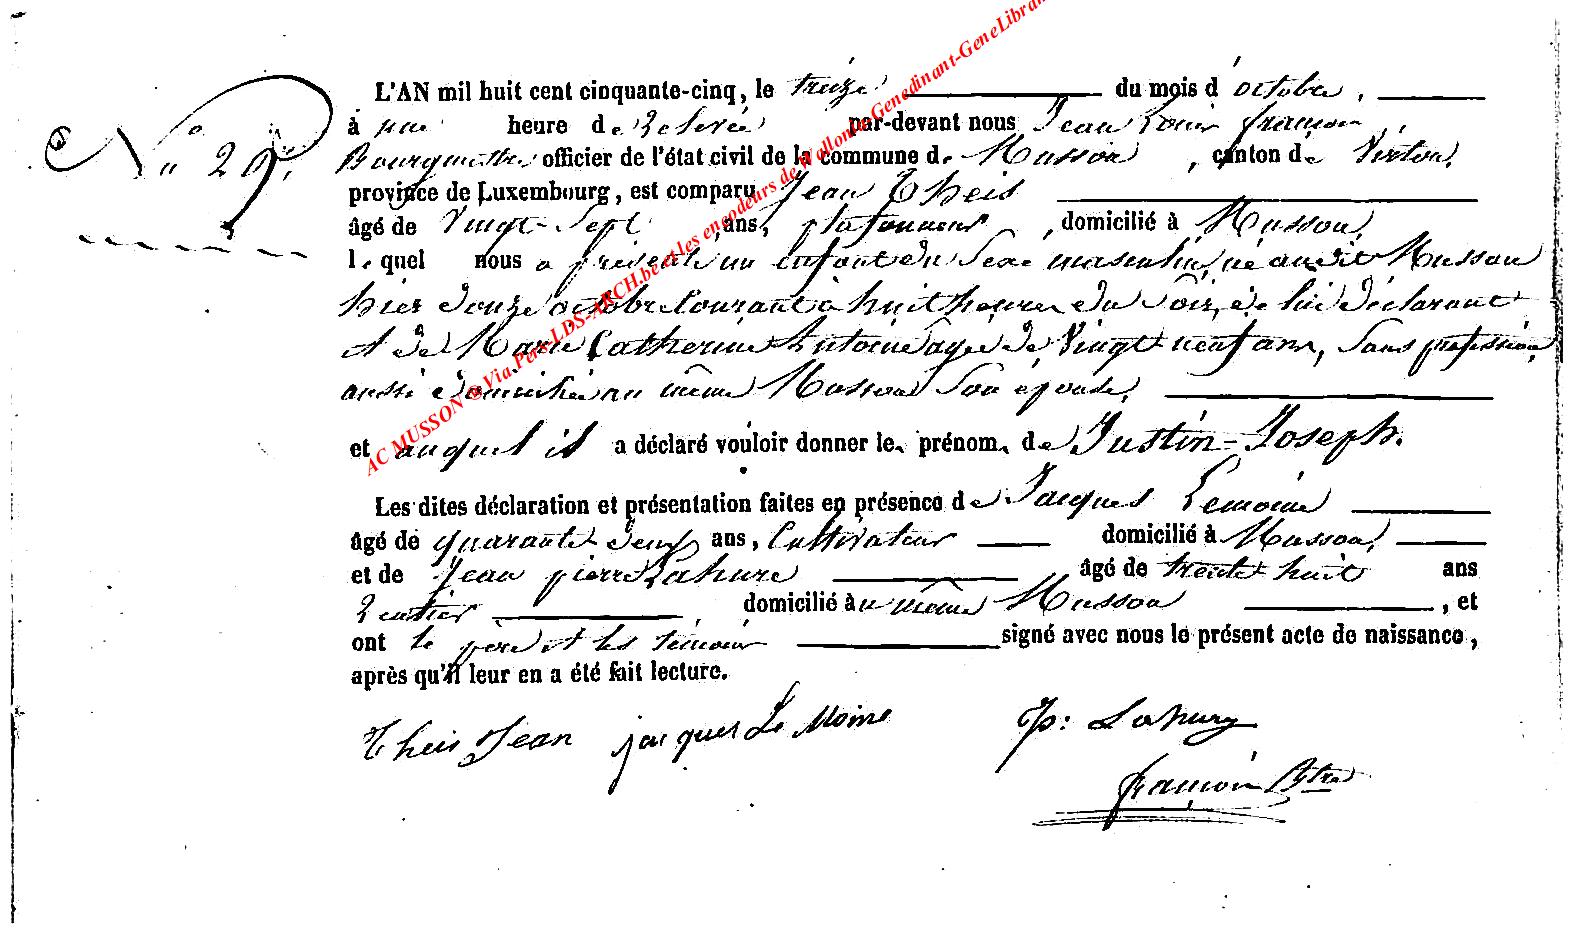 N° 29.
L'AN mil huit cent cinquante-cinq, le treize du mois d'octobre,
à une heure de relevée par-devant nous Jean Louis françois,
Bourgmestre officier de l'état civil de la commune de Musson, canton de Virton,
province de Luxembourg, est comparu Jean Theis
âgé de Vingt-Sept ans, plafonneur, domicilié à Musson,
le quel nous a présenté un enfant du Sexe masculin, né audit Musson
hier douze octobre Courant à huit heures du Soir, de lui déclarant
et de Marie Catherine Antoine agée de Vingt neuf ans, Sans profession,
aussi domiciliée au même Musson Son épouse,
et auquel il a déclaré vouloir donner le prénom de Justin-Joseph.
Les dites déclaration et présentation faites en présence de Jacques Lemoine
âgé de quarante-deux ans, Cultivateur domicilié à Musson,
et de Jean pierre Lahure âgé de trente huit ans
Rentier, domicilié au même Musson, et
ont le père et les témoins signé avec nous le présent acte de naissance,
après qu'il leur en a été fait lecture.
Theis Jean jacques Le Moine Jp: Lahure
françois Btre
AC MUSSON @ Via Pers-LDS-ARCH.be et les encodeurs de Wallonia-Genedinant-GeneLibran